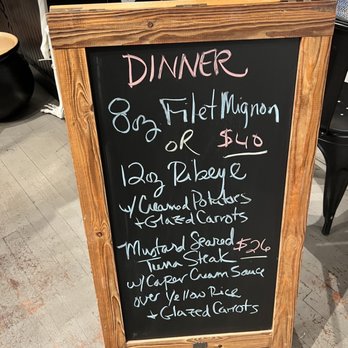 DINNER
8oz Filet Mignon
OR $40
12oz Ribeye
w/ Creamed Potatoes
+ Glazed Carrots
Mustard Seared $26
Tuna Steak
w/ Caper Cream Sauce
over Yellow Rice
+ Glazed Carrots